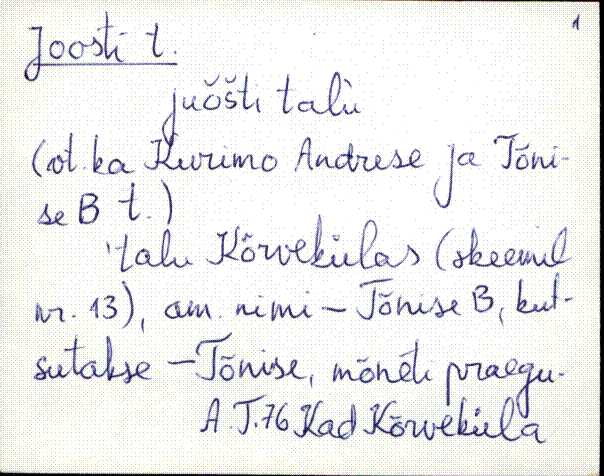 1
Joosti t.
juošti talù
(vt. ka Kurimo Andrese ja Tõni-
se B t.)
'talu Kõrvekülas (skeemil
nr. 13), am. nimi - Tõnise B, kut-
sutakse - Tõnise, mõnèti praegu.
A.T. 76 Kad Kõrveküla